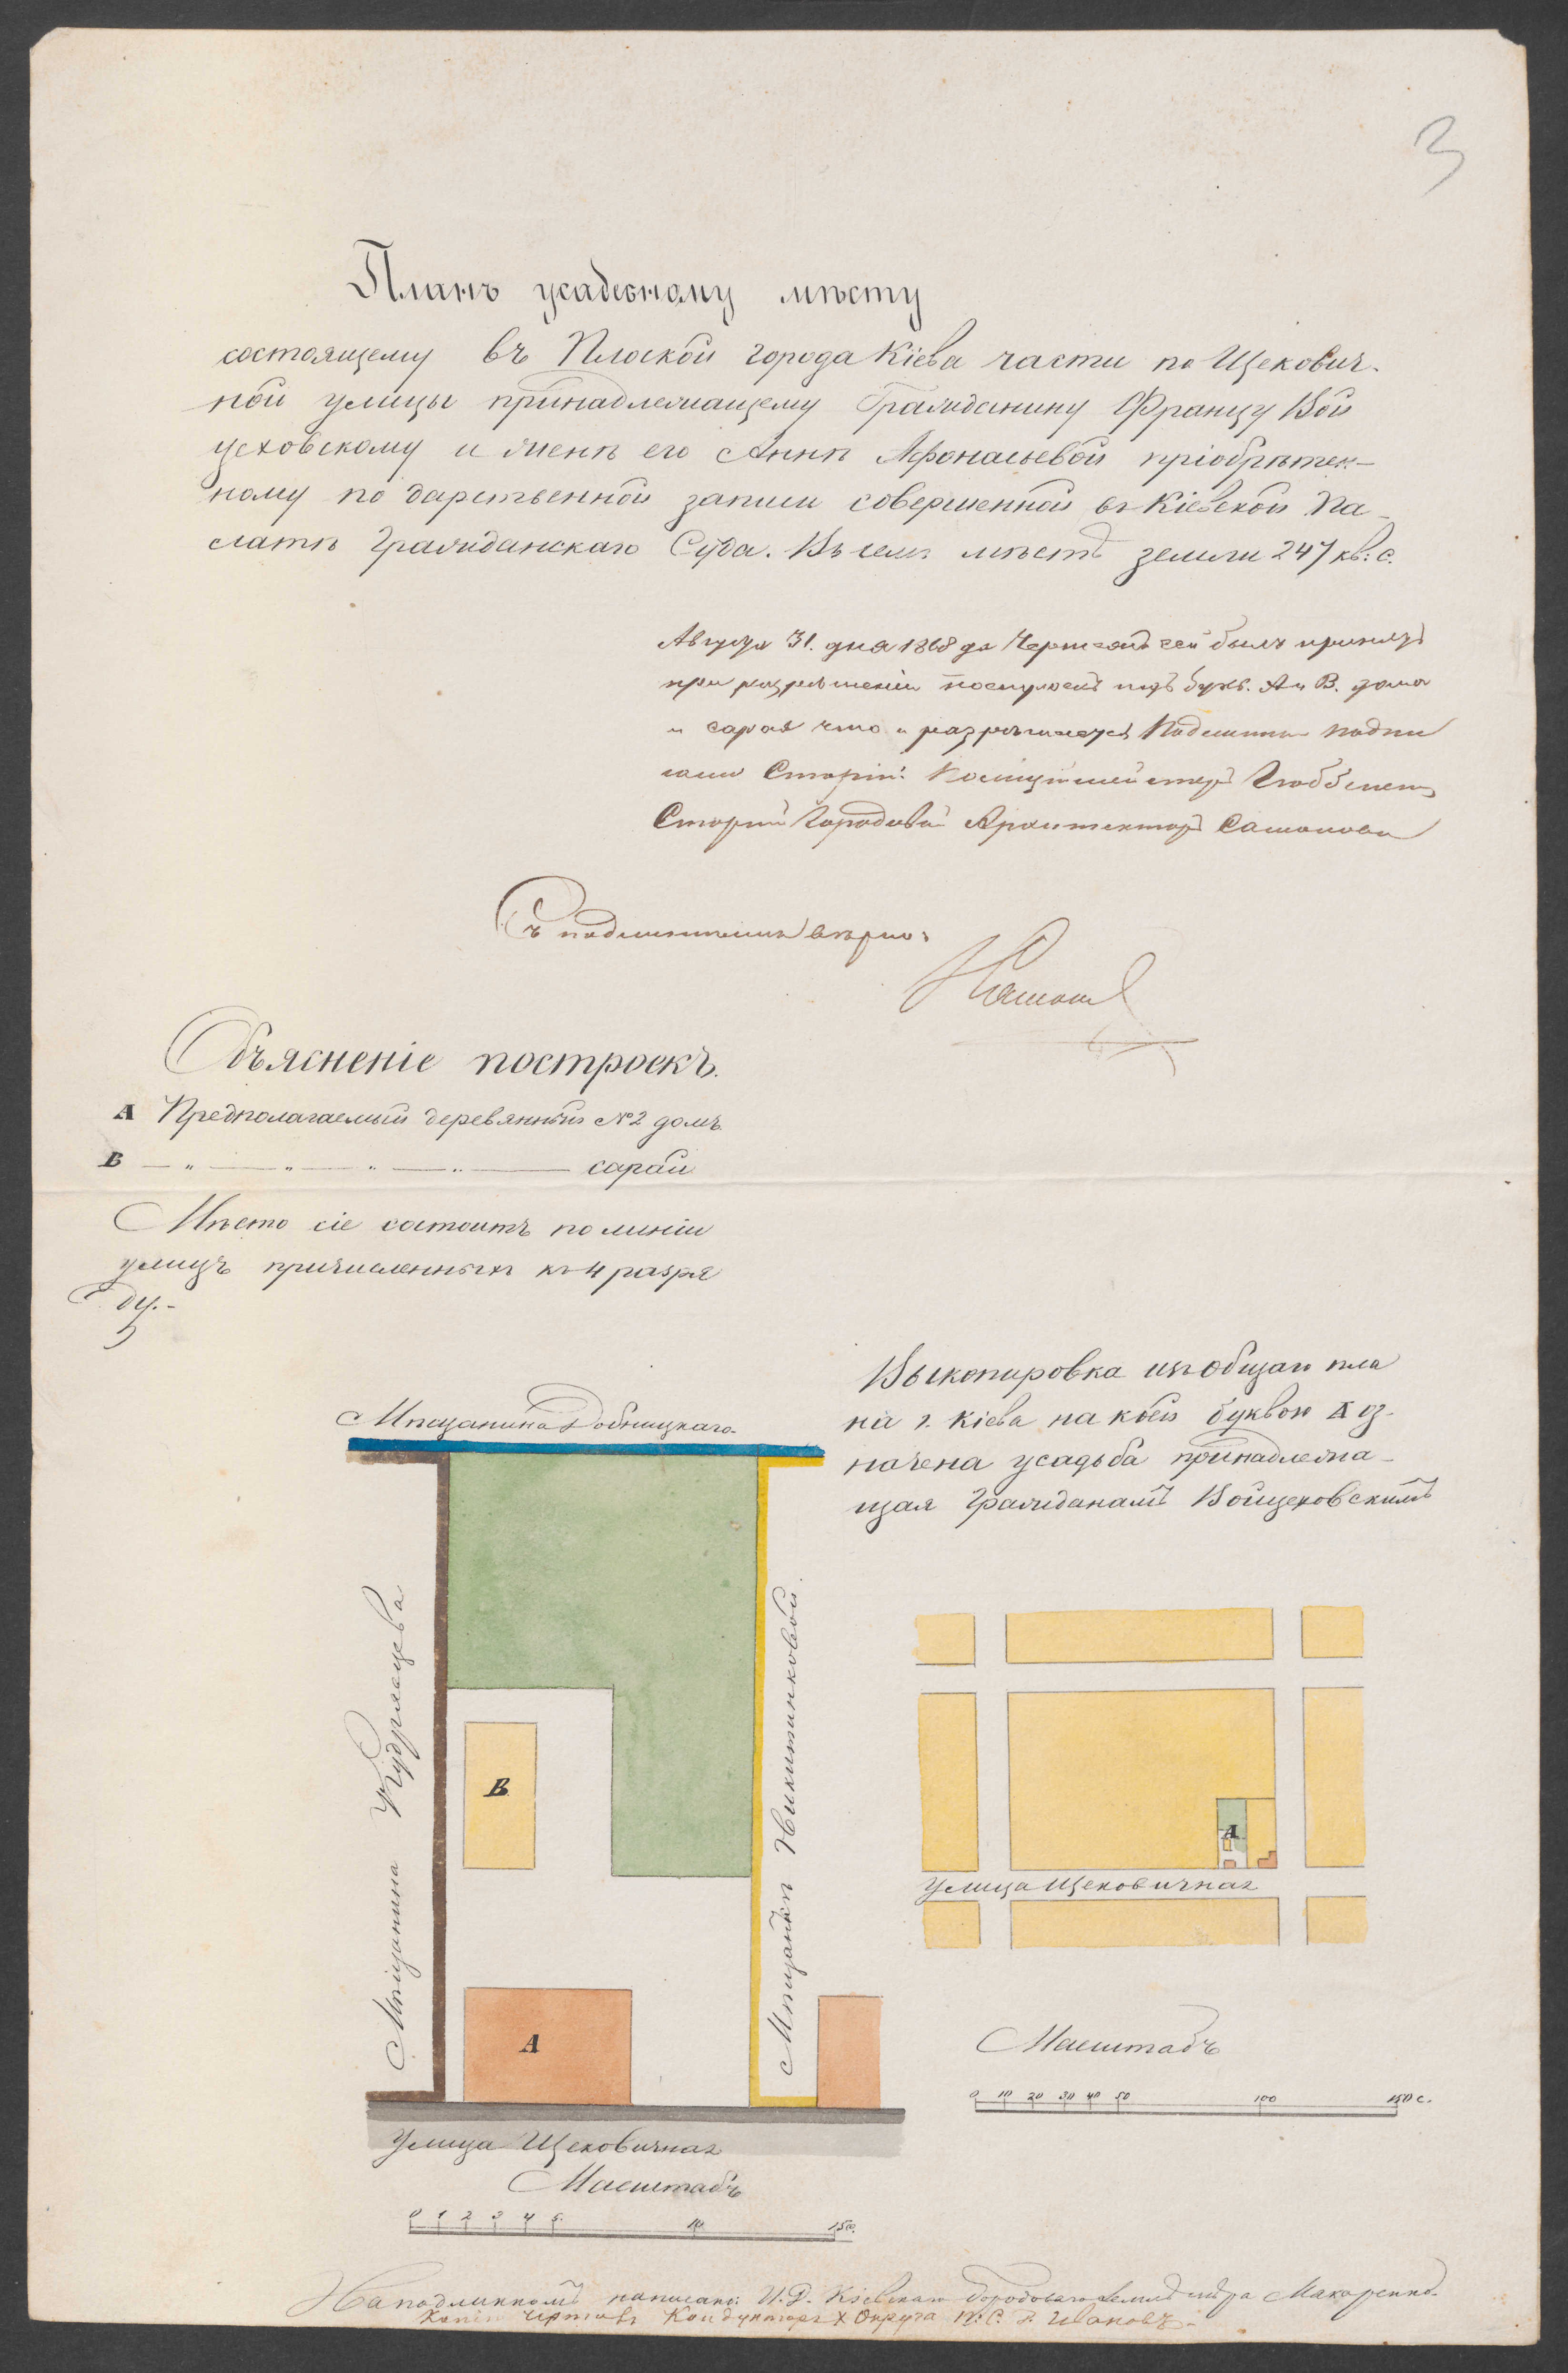 3
Планъ усадебному мѣсту
состоящему въ Плоской города Кіева части по Щекович-
ной улицы принадлежащему Гражданину Францу Вой
цеховскому и женѣ его Аннѣ Афонасьевой пріобрѣтен-
ному по дарственной записи совершенной въ Кіевской Па-
латѣ Гражданскаго Суда. Въ семъ мѣстѣ земли 247 кв: с.
Августа 31. дня 1868 да Чертежъ сей былъ принятъ
при разрѣшеніи построекъ подъ букв. А и В. дома
и сарая что и разрѣшается Подлинно подпи
сали Старій: Полиціймейстеръ Гюббенетъ
Старій Городовой Архитекторъ
Съ подлиннымъ вѣрно:
Объясненіе построекъ.
А Предполагаемый деревянный №2 домъ.
В — „ — „ — „ — „ — сарай
Мѣсто сіе состоитъ по линіи
улицъ причисленныхъ къ 4 разря
ду.-
Выкопировка изъ общаго пла
на г. Кіева на коей буквою А оз-
начена усадьба принадлежа-
щая Гражданамъ Войцеховскимъ
Мѣщанина
Мѣщанина Кудрявцева
Мѣщанкѣ Никитинковой.
В
А
Улица Щековичная
Масштабъ
0 1 2 3 4 5. 10 15 с.
А
Улица Щековичная
Масштабъ
0 10 20 30 40 50 100 150 с.
На подлинномъ написано: И. Д. Кіевскаго Городоваго Землемѣра Макаренко.
Копію чертилъ Кондукторъ X Округа П. С. Ивановъ.